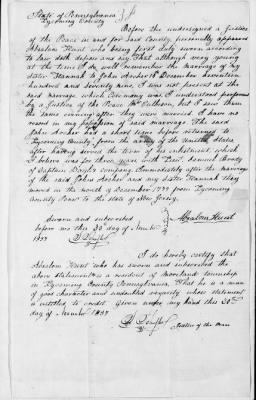 State of Pennsylvania } ss
Lycoming County
Before the undersigned a Justice
of the Peace in and for said County, personally appeared
Absalom Hurst who being first duly sworn according
to law doth depose and say That although very young
at the time I do well remember the marriage of my
sister Hannah to John Archer in December seventeen
hundred and seventy nine, I was not present at the
said marriage which Ceremony was I understand performed
by a Justice of the Peace but I saw them
the same evening after they were married. I have no
record in my possession of said marriage. The said
John Archer had a short time before returned to
Lycoming County from the army of the United States
after having served the term of his enlistment, which
I believe was for three years with Lieut. Samuel Brady
of Captain company. Immediately after the marriage
of the said John Archer and my sister Hannah they
moved in the month of December 1779 from Lycoming
County Penn to the state of New Jersey.
Sworn and subscribed
before me this day of
Absalom Hurst
I do hereby certify that
Absalom Hurst who has sworn and subscribed the
above statement is a resident of township
in Lycoming County Pennsylvania. That he is a man
of good character and undoubted veracity whose statement
is entitled to credit. Given under my hand this
day of
Justice of the Peace